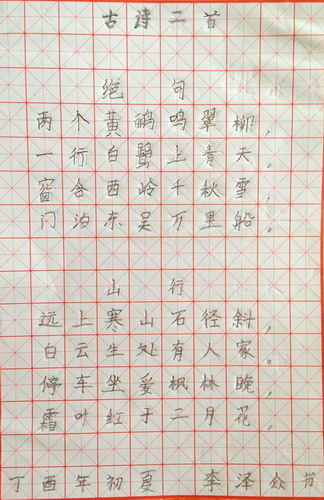 古诗二首
绝句
两个黄鹂鸣翠柳，
一行白鹭上青天。
窗含西岭千秋雪，
门泊东吴万里船。
山行
远上寒山石径斜，
白云生处有人家。
停车坐爱枫林晚，
霜叶红于二月花。
丁酉年初夏 李泽众书